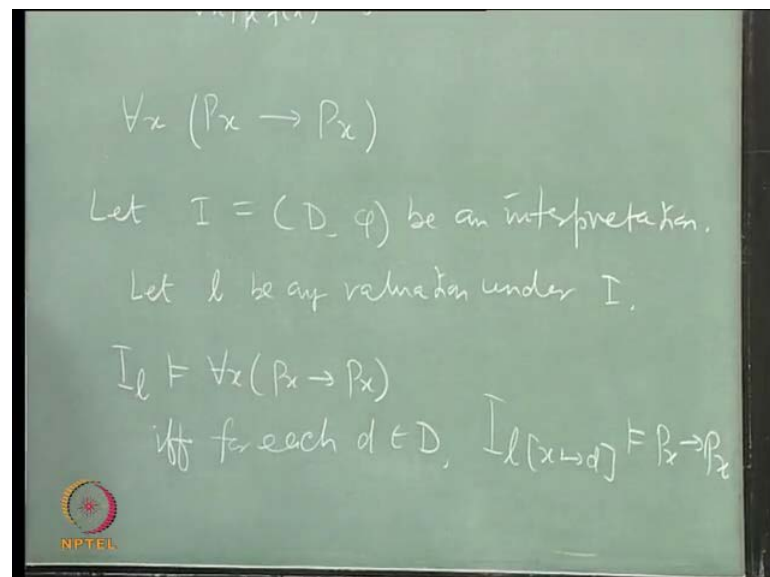 ∀x (Px → Px)
Let I = (D, φ) be an interpretation.
Let l be any valuation under I.
I_l ⊨ ∀x(Px → Px)
iff for each d ∈ D, I_{l[x↦d]} ⊨ Px → Px
NPTEL